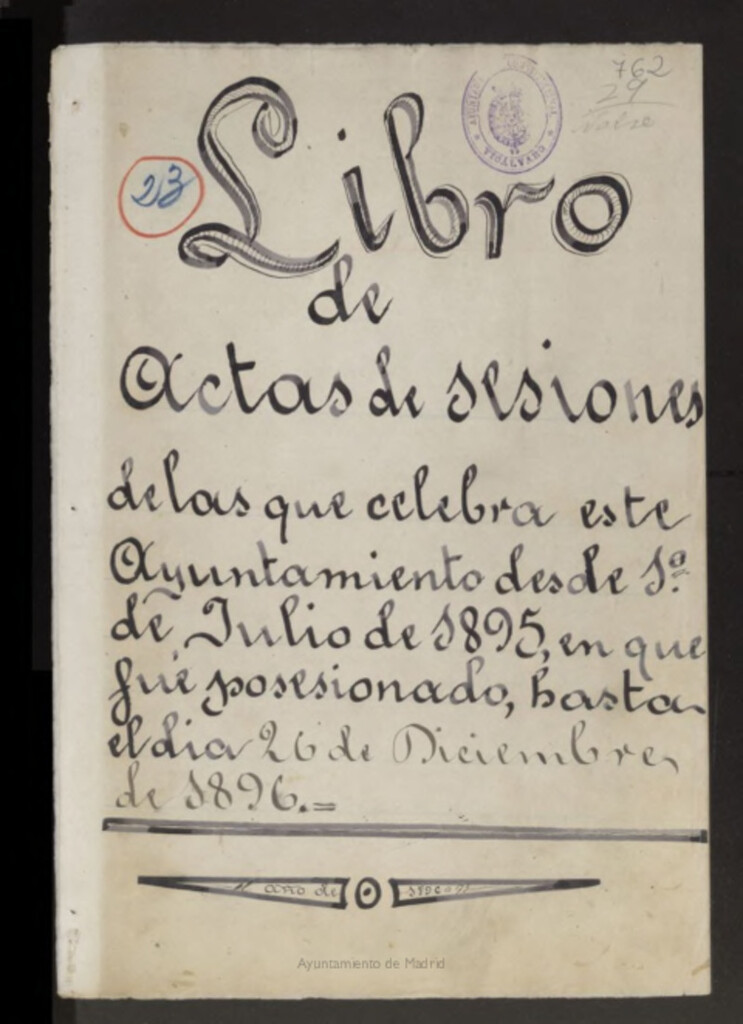 762
29
23
Libro
de
Actas de sesiones
de las que celebra este
Ayuntamiento desde 1º
de Julio de 1895, en que
fué posesionado, hasta
el dia 26 de Diciembre
de 1896.=
VICALVARO
año de
Ayuntamiento de Madrid